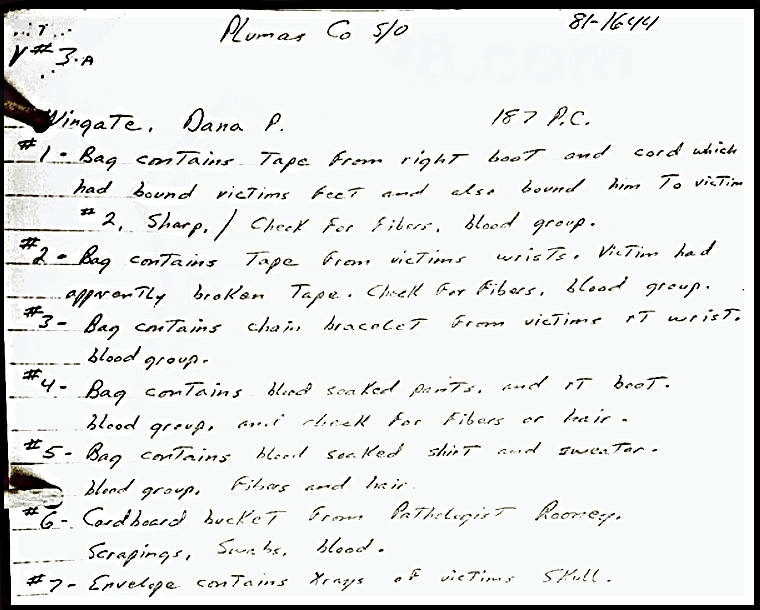 Plumas Co S/O 81-1644
V# 3-A
Wingate, Dana P. 187 P.C.
#1- Bag contains Tape from right boot and cord which
had bound victims feet and also bound him To victim
#2, Sharp./ Check For Fibers, blood group.
#2- Bag contains Tape From victims wrists. Victim had
apparently broken Tape. Check For Fibers, blood group.
#3- Bag contains chain bracelet from victims rt wrist.
blood group.
#4- Bag contains blood soaked pants, and rt boot.
blood group, and check for Fibers or hair.
#5- Bag contains blood soaked shirt and sweater.
blood group, Fibers and hair
#6- Cardboard bucket From Pathologist Rooney.
Scrapings, Swabs, blood.
#7- Envelope contains Xrays of victims Skull.